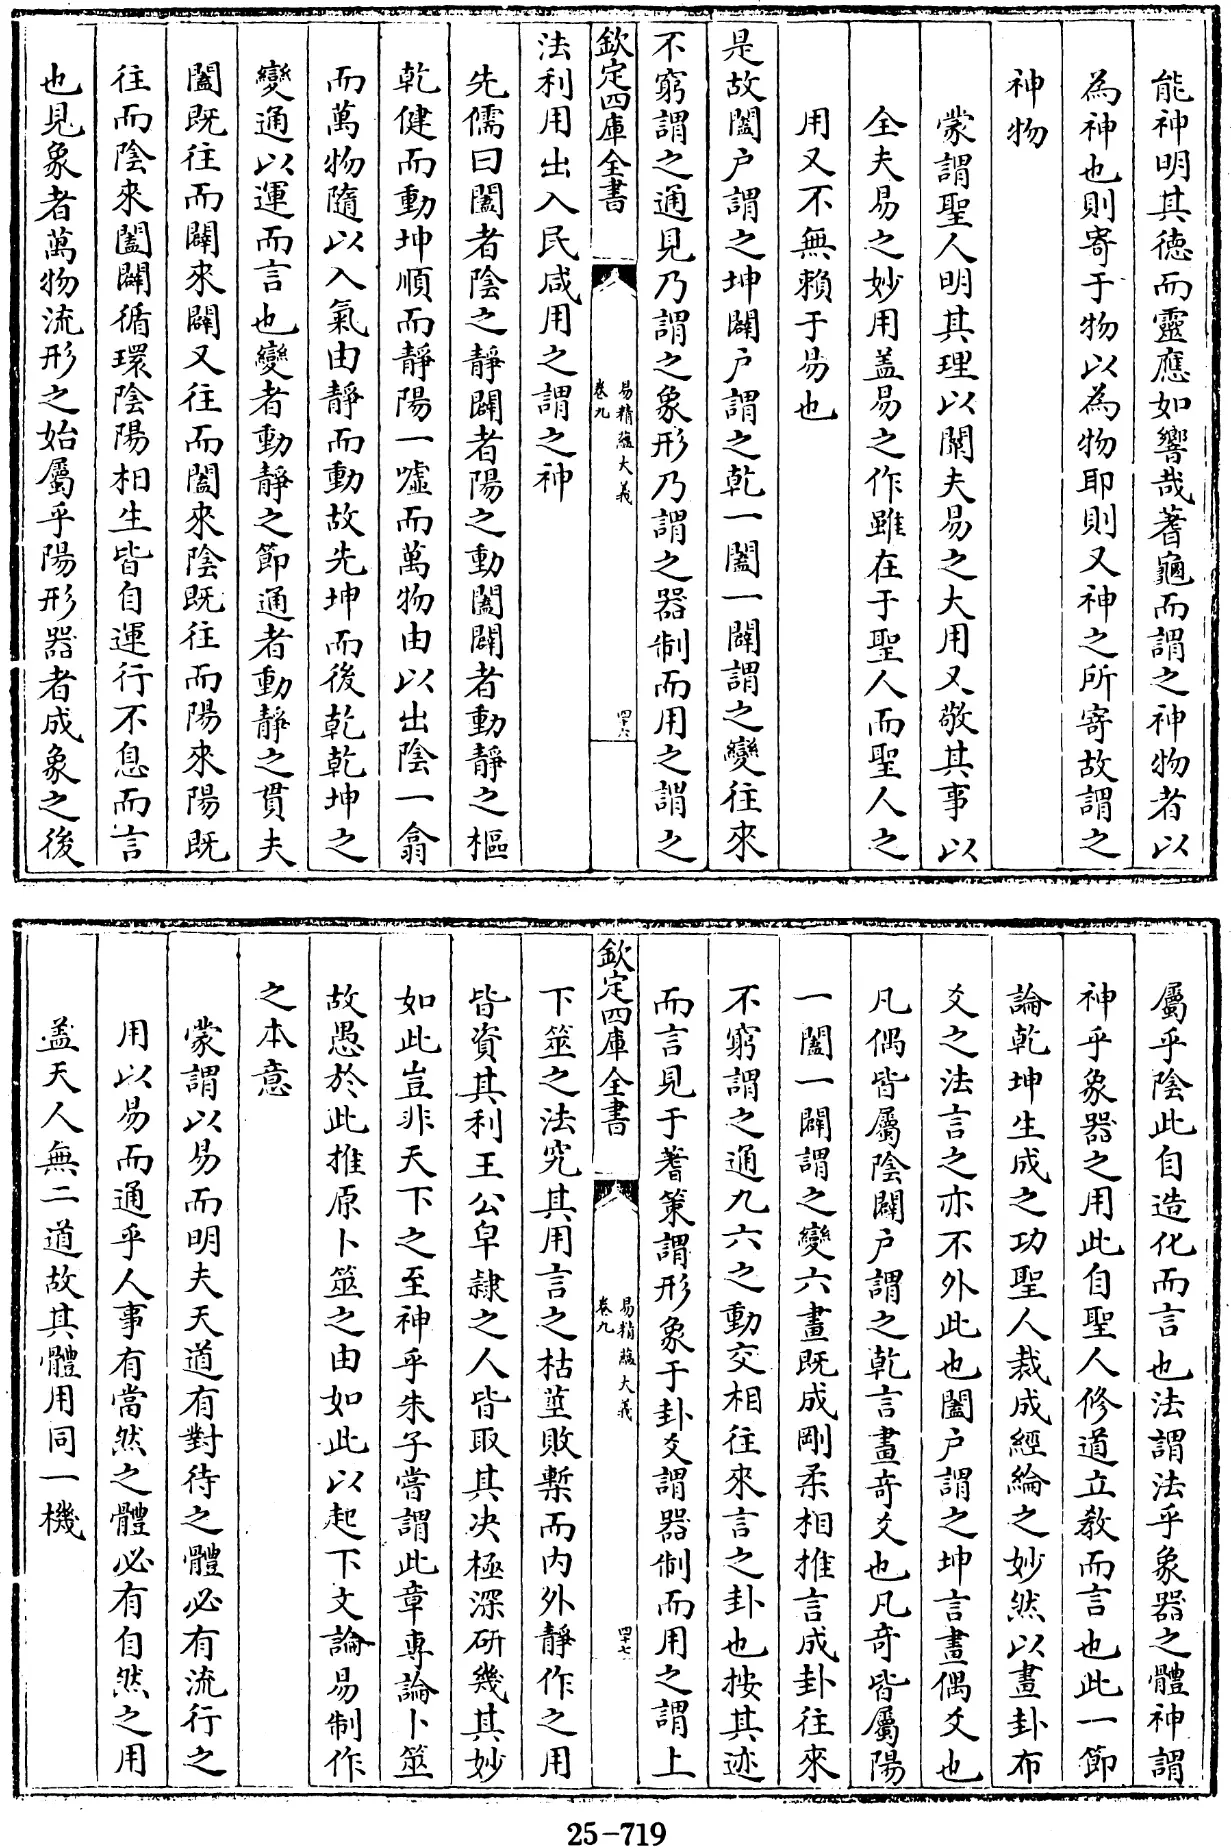 能神明其德而靈應如響哉蓍龜而謂之神物者以
為神也則寄于物以為物耶則又神之所寄故謂之
神物
蒙謂聖人明其理以闡夫易之大用又敬其事以
全夫易之妙用盖易之作雖在于聖人而聖人之
用又不無賴于易也
是故闔户謂之坤闢户謂之乾一闔一闢謂之變往來
不窮謂之通見乃謂之象形乃謂之器制而用之謂之
欽定四庫全書
易精蘊大義
卷九
四十六
法利用出入民咸用之謂之神
先儒曰闔者陰之靜闢者陽之動闔闢者動靜之樞
乾健而動坤順而靜陽一噓而萬物由以出陰一翕
而萬物隨以入氣由靜而動故先坤而後乾乾坤之
變通以運而言也變者動靜之節通者動靜之貫夫
闔既往而闢來闢又往而闔來陰既往而陽來陽既
往而陰來闔闢循環陰陽相生皆自運行不息而言
也見象者萬物流形之始屬乎陽形器者成象之後
屬乎陰此自造化而言也法謂法乎象器之體神謂
神乎象器之用此自聖人修道立教而言也此一節
論乾坤生成之功聖人裁成經綸之妙然以畫卦布
爻之法言之亦不外此也闔户謂之坤言畫偶爻也
凡偶皆屬陰闢户謂之乾言畫奇爻也凡奇皆屬陽
一闔一闢謂之變六畫既成剛柔相推言成卦往來
不窮謂之通九六之動交相往來言之卦也按其迹
而言見于蓍策謂形象于卦爻謂器制而用之謂上
欽定四庫全書
易精蘊大義
卷九
四十七
下筮之法究其用言之枯莖敗槧而内外靜作之用
皆資其利王公皁隸之人皆取其决極深研幾其妙
如此豈非天下之至神乎朱子嘗謂此章專論卜筮
故愚於此推原卜筮之由如此以起下文論易制作
之本意
蒙謂以易而明夫天道有對待之體必有流行之
用以易而通乎人事有當然之體必有自然之用
盖天人無二道故其體用同一機
25-719